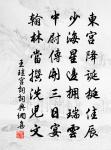 東宮降誕挺佳辰
少海星邊擁瑞雲
中尉傳聞三日宴
翰林當撰洗兒文
王珪宮詞詩典個喜